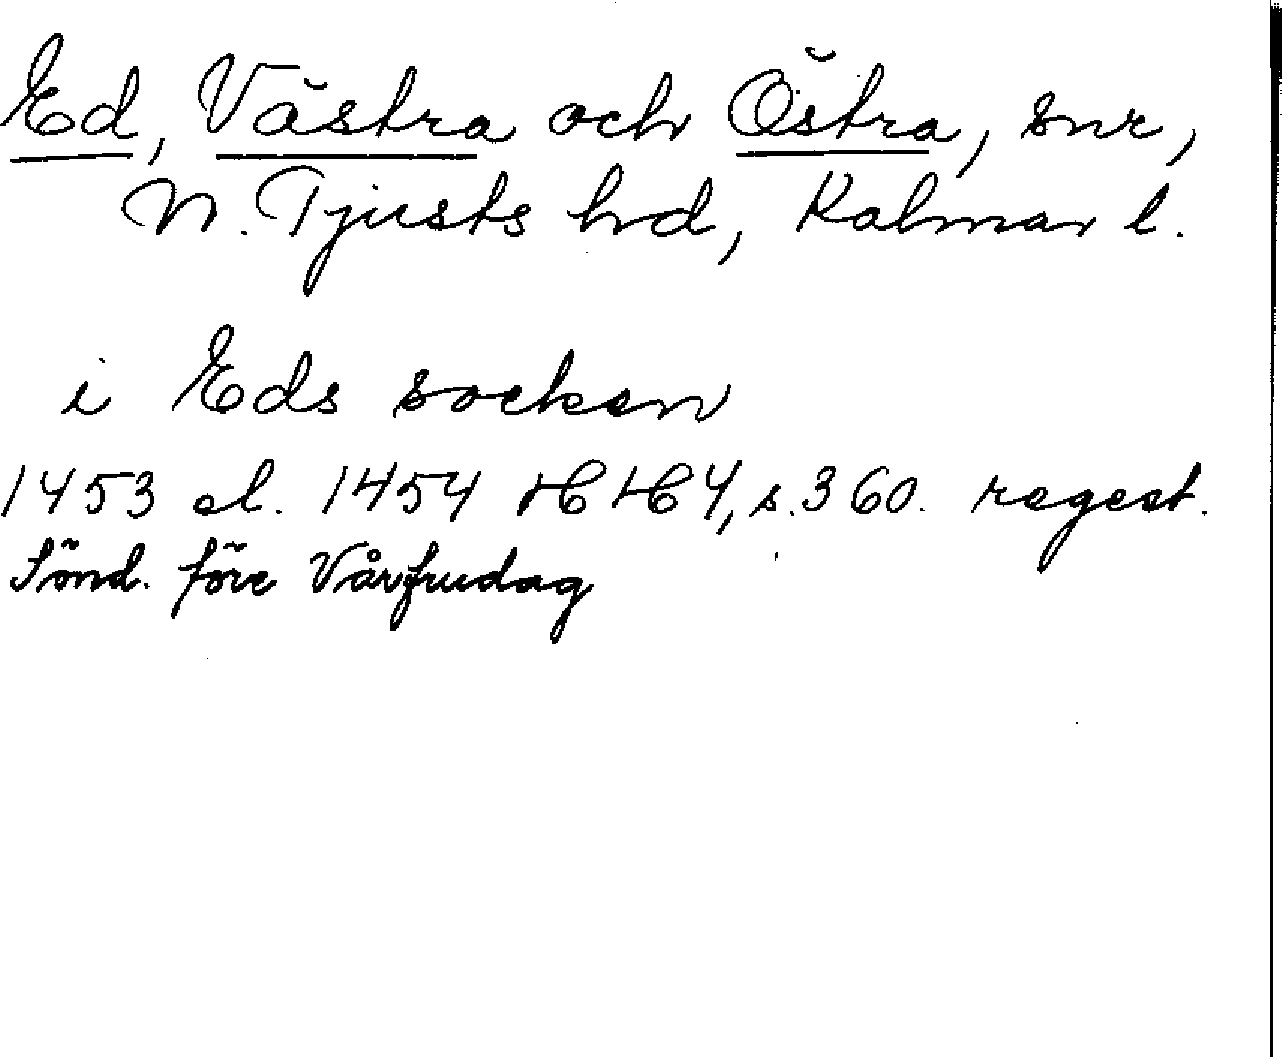 Ed, Västra och Östra, snr,
N. Tjusts hd, Kalmar l.
i Eds socken
1453 el. 1454 HH 4, s. 360. regest.
Sönd. före Vårfrudag